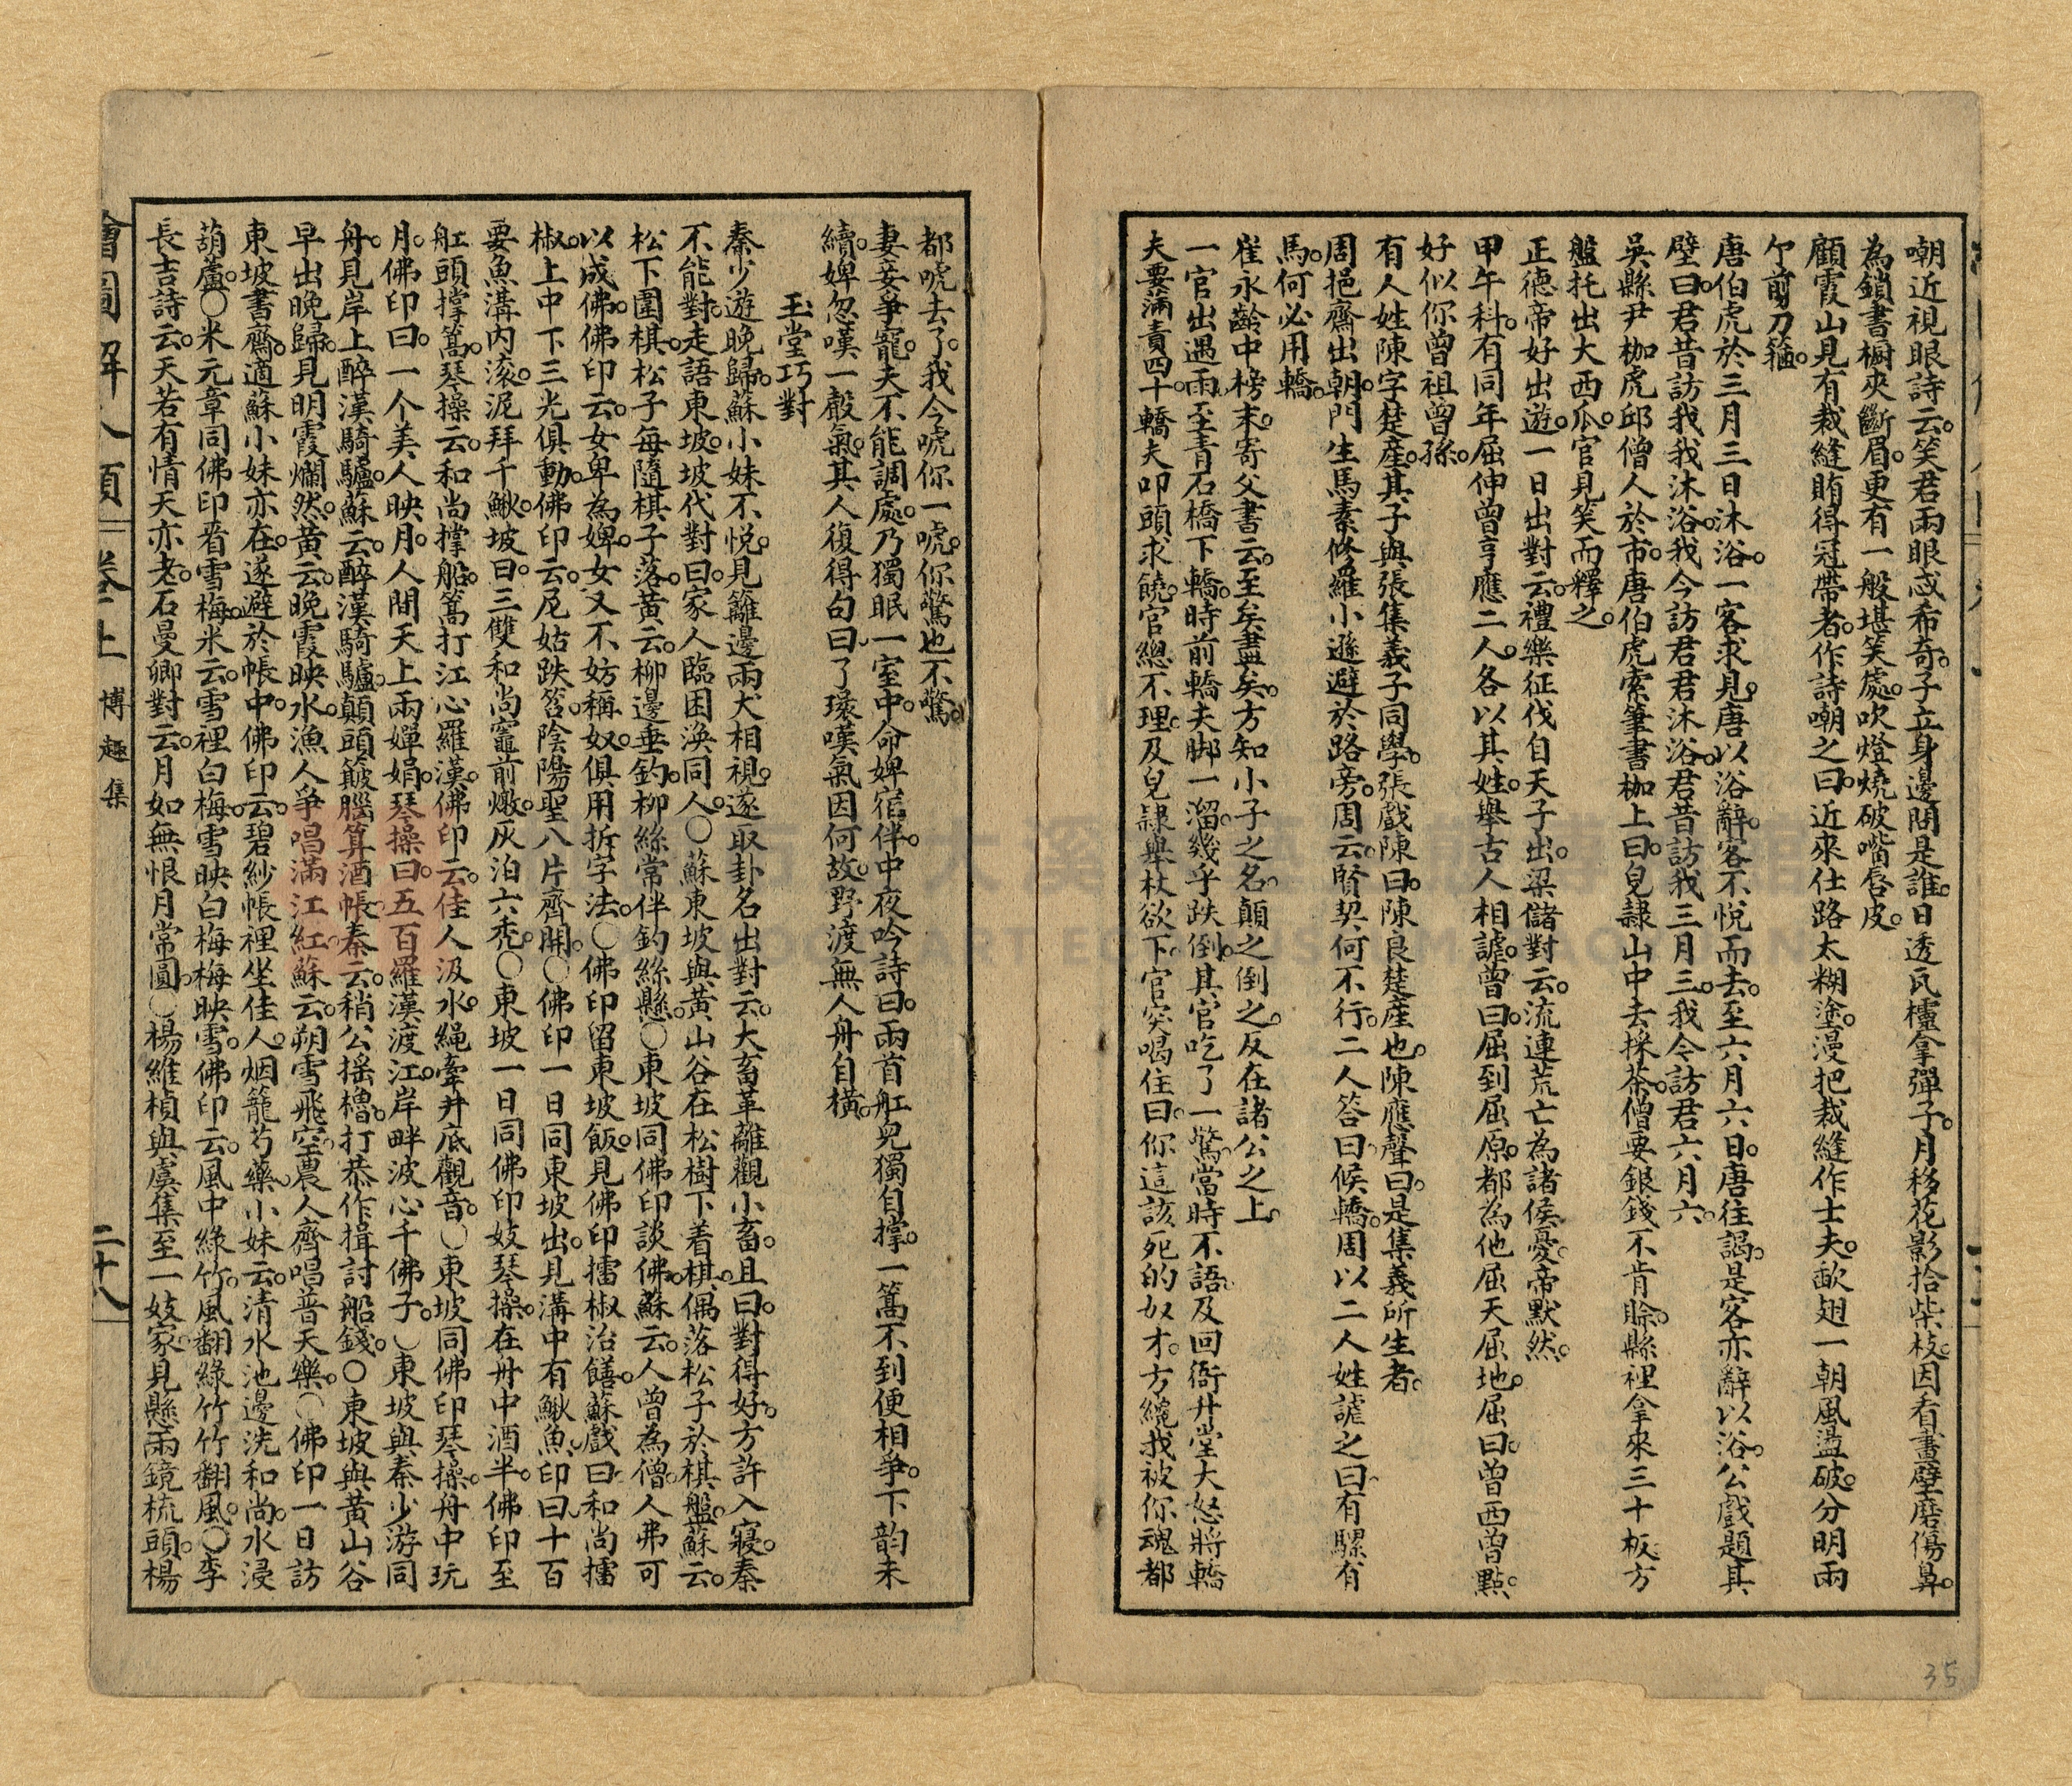 嘲近視眼詩云。笑君兩眼惑希奇。子立身邊問是誰。日透瓦櫺拿彈子。月移花影拾柴枝。因看畫壁磨傷鼻。
為鎖書櫥夾斷眉。更有一般堪笑處。吹燈燒破嘴唇皮。
顧霞山見有裁縫賄得冠帶者。作詩嘲之曰。近來仕路太糊塗。漫把裁縫作士夫。歃翅一朝風盪破。分明兩
个剪刀箍。
唐伯虎於三月三日沐浴。一客求見。唐以浴辭。客不悅而去。至六月六日。唐往謁。是客亦辭以浴。公戲題其
壁曰。君昔訪我我沐浴。我今訪君君沐浴。君昔訪我三月三。我今訪君六月六。
吳縣尹枷虎邱僧人於市。唐伯虎索筆書枷上曰。皂隸山中去採茶。僧要銀錢不肯賒。縣裡拿來三十板。方
盤托出大西瓜。官見笑而釋之。
正德帝好出遊。一日出對云。禮樂征伐自天子出。梁儲對云。流連荒亡為諸侯憂。帝默然。
甲午科。有同年屈伸曾亨應二人。各以其姓。舉古人相謔。曾曰。屈到屈原。都為他屈天屈地。屈曰。曾西曾點。
好似你曾祖曾孫。
有人姓陳字楚產。其子與張集義子同學。張戲陳曰。陳良楚產也。陳應聲曰。是集義所生者。
周挹齋出朝。門生馬素修羅小遜避於路旁。周云。賢契何不行。二人答曰候轎。周以二人姓謔之曰。有騾有
馬。何必用轎。
崔永齡中榜末。寄父書云。至矣盡矣。方知小子之名。顛之倒之。反在諸公之上。
一官出遇雨。至青石橋下轎。時前轎夫脚一溜。幾乎跌倒。其官吃了一驚。當時不語。及回衙升堂大怒。將轎
夫要滿責四十。轎夫叩頭求饒。官總不理。及皂隸舉杖欲下。官突喝住曰。你這該死的奴才。方纔我被你魂都
都唬去了。我今唬你一唬。你驚也不驚。
妻妾爭寵。夫不能調處。乃獨眠一室中。命婢宿伴。中夜吟詩曰。兩首舡兒獨自撐。一篙不到便相爭。下韵未
續。婢忽嘆一聲氣。其人復得句曰。了環嘆氣因何故。野渡無人舟自橫。
玉堂巧對
秦少遊晚歸。蘇小妹不悅。見籬邊兩犬相視。遂取卦名出對云。大畜革離觀小畜。且曰。對得好。方許入寢。秦
不能對。走語東坡。坡代對曰。家人臨困渙同人。〇蘇東坡與黃山谷在松樹下着棋。偶落松子於棋盤。蘇云。
松下圍棋。松子每隨棋子落。黃云。柳邊垂釣。柳絲常伴釣絲懸。〇東坡同佛印談佛。蘇云。人曾為僧。人弗可
以成佛。佛印云。女卑為婢。女又不妨稱奴。俱用拆字法。〇佛印留東坡飯。見佛印擂椒治饍。蘇戲曰。和尚擂
椒。上中下三光俱動。佛印云。尼姑跌筶。陰陽聖八片齊開。〇佛印一日同東坡出。見溝中有鰍魚。印曰。十百
要魚溝內滚。泥拜千鰍。坡曰。三雙和尚竈前燉。灰泊六禿。〇東坡一日同佛印妓琴操。在舟中酒半。佛印至
舡頭撐篙。琴操云。和尚撐船。篙打江心羅漢。佛印云。佳人汲水。繩牽井底觀音。〇東坡同佛印琴操。舟中玩
月。佛印曰。一个美人映月。人間天上兩嬋娟。琴操曰。五百羅漢渡江。岸畔波心千佛子。〇東坡與秦少游同
舟。見岸上醉漢騎驢。蘇云。醉漢騎驢。顛頭簸腦算酒帳。秦云。稍公搖櫓。打恭作揖討船錢。〇東坡與黃山谷
早出晚歸。見明霞爛然。黃云。晚霞映水。漁人爭唱滿江紅。蘇云。朔雪飛空。農人齊唱普天樂。〇佛印一日訪
東坡書齋。適蘇小妹亦在。遂避於帳中。佛印云。碧紗帳裡坐佳人。烟籠芍藥。小妹云。清水池邊洗和尚。水浸
葫蘆。〇米元章同佛印看雪梅。米云。雪裡白梅。雪映白梅梅映雪。佛印云。風中綠竹。風翻綠竹竹翻風。〇李
長吉詩云。天若有情天亦老。石曼卿對云。月如無恨月常圓。〇楊維楨與虞集至一妓家。見懸兩鏡梳頭。楊
繪圖解人頤 卷上 博趣集 二十八
35